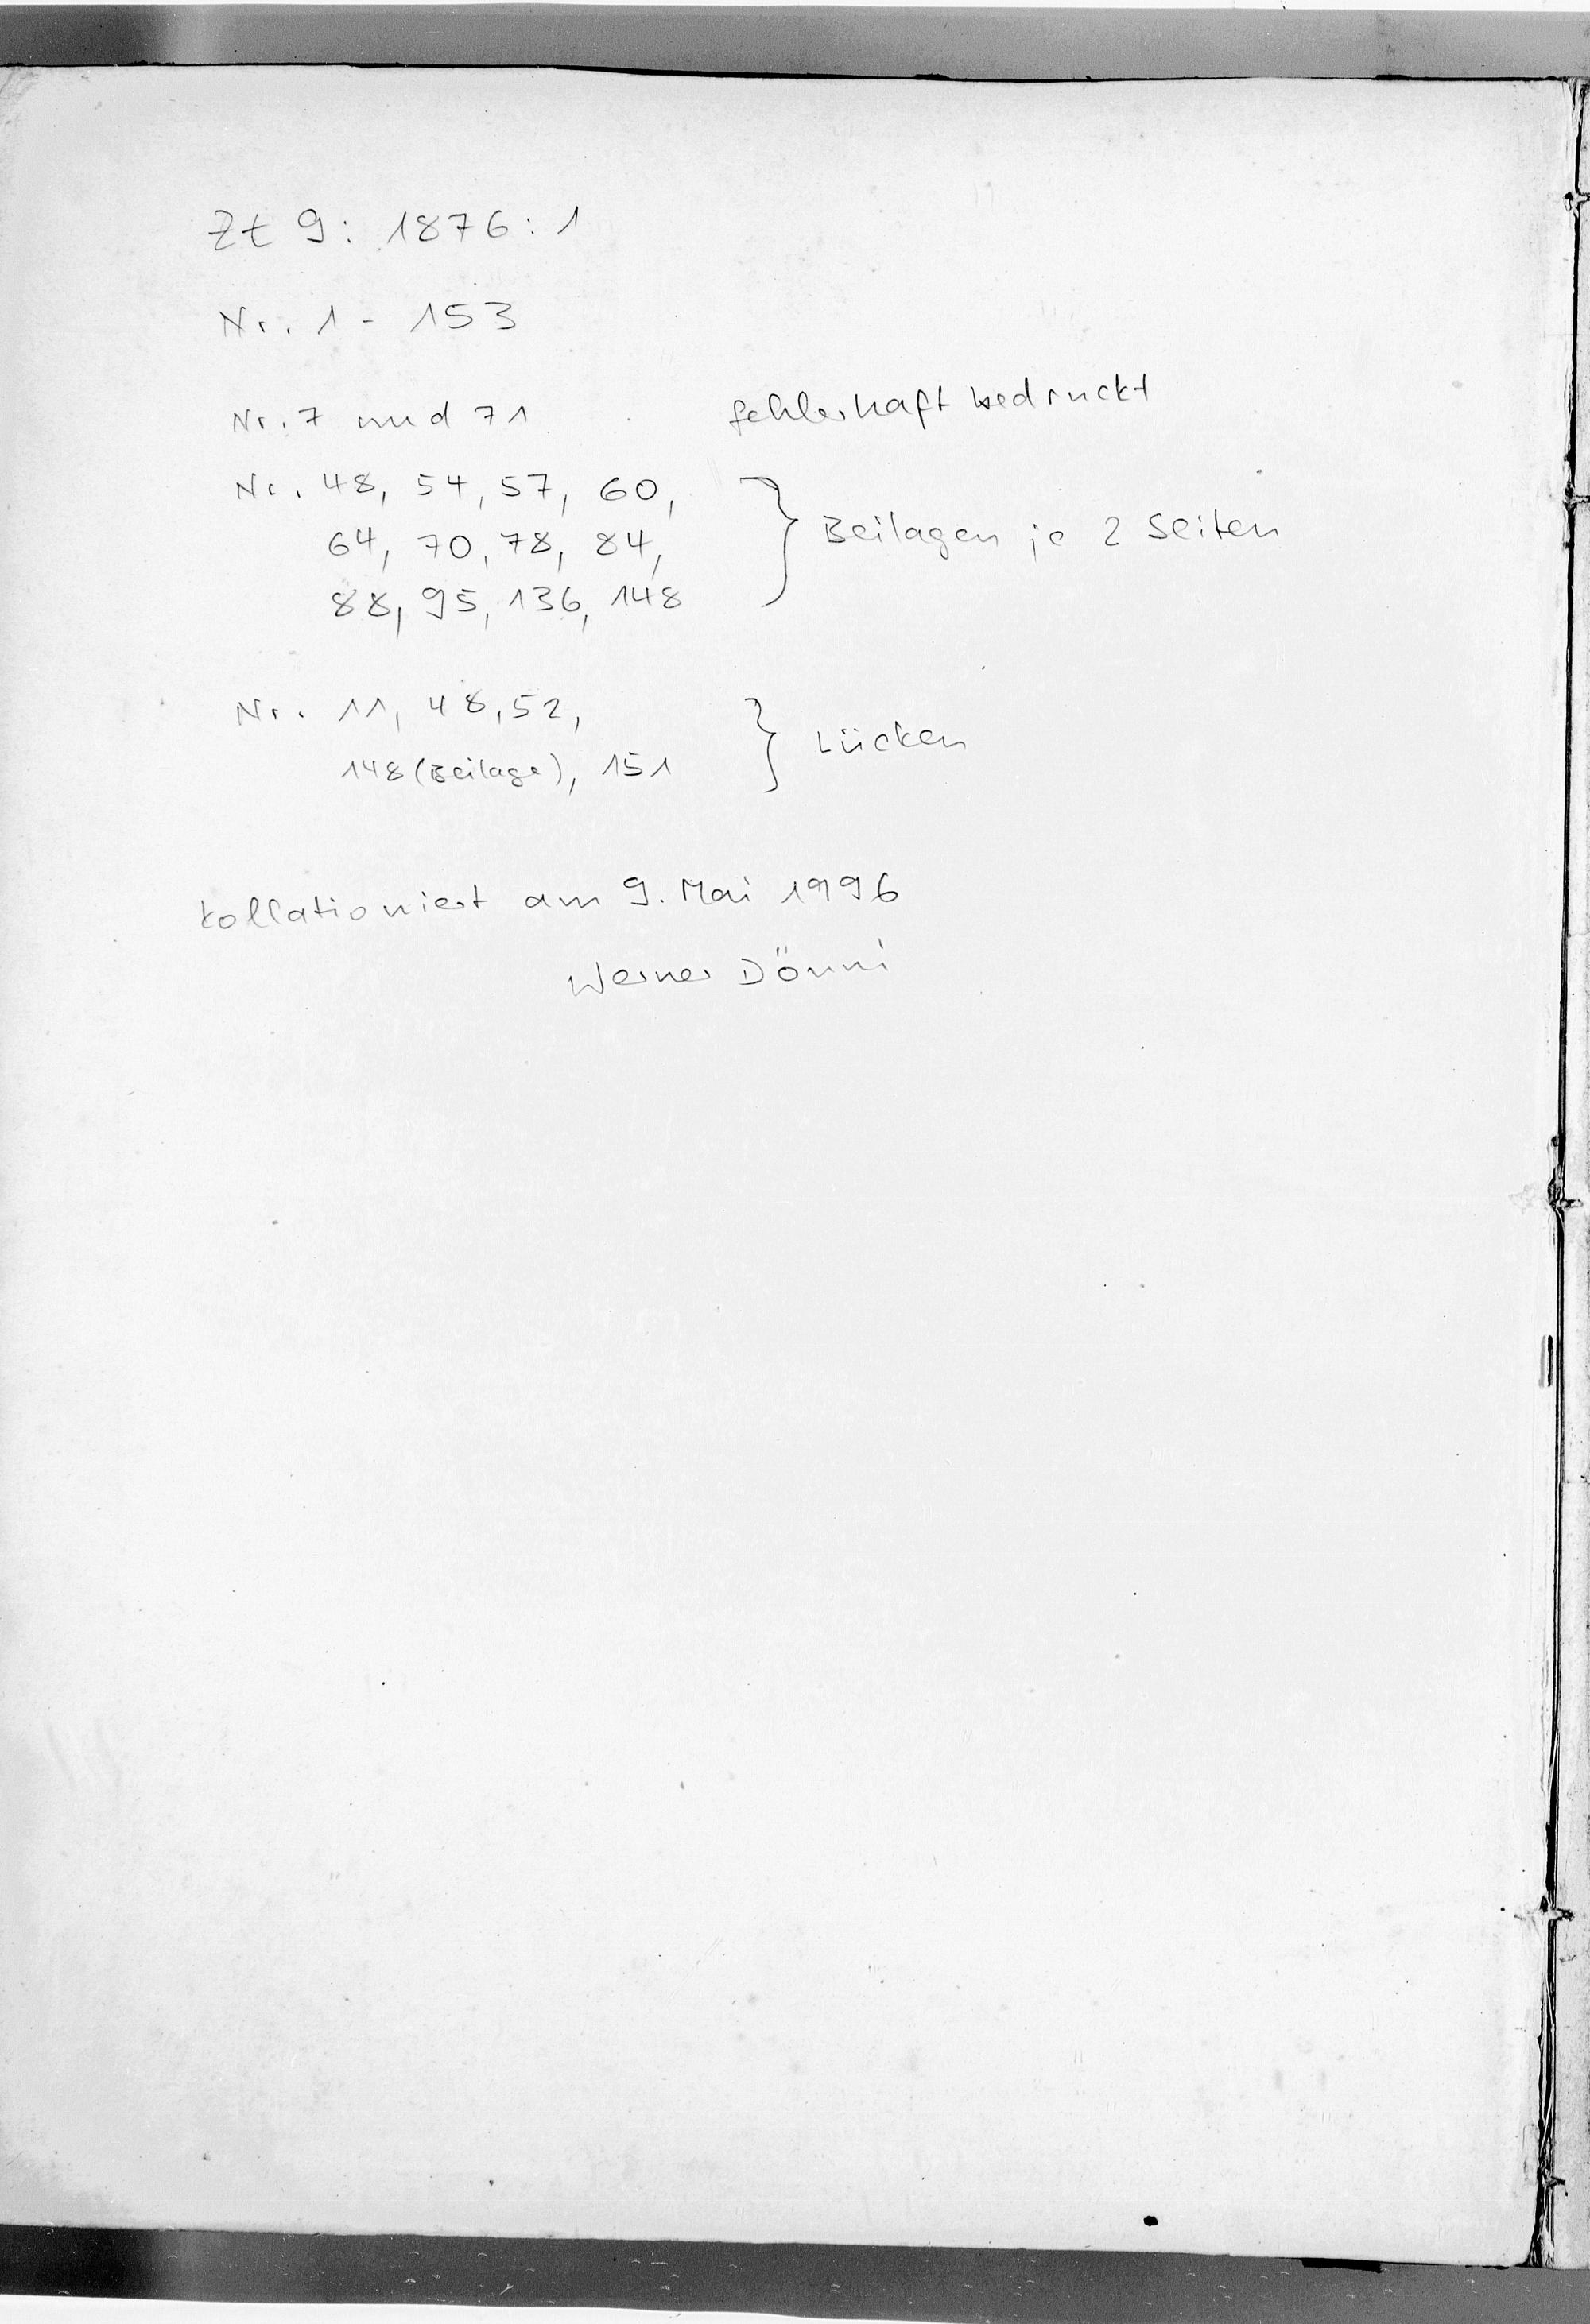 Zt 9: 1876: 1
Nr. 1 - 153
Nr. 7 und 71 fehlerhaft bedruckt
Nr. 48, 54, 57, 60,
64, 70, 78, 84, } Beilagen je 2 Seiten
88, 95, 136, 148
Nr. 11, 48, 52,
148 (Beilage), 151 } Lücken
kollationiert am 9. Mai 1996
Werner Dönni